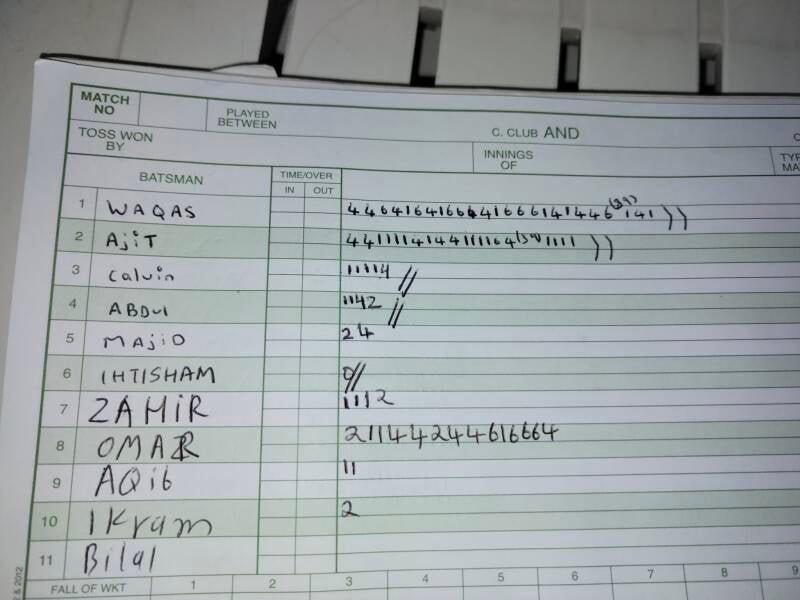 MATCH NO
PLAYED BETWEEN
C. CLUB AND
TOSS WON BY
INNINGS OF
BATSMAN
TIME/OVER
IN OUT
1 WAQAS
2 AjiT 4411114144111164 1111
3 Calvin 11114 //
4 ABDUl 1142 //
5 MAjiD 24
6 IHTISHAM 0//
7 ZAMiR 1112
8 OMAR 21144244616664
9 AQib 11
10 IKram 2
11 Bilal
FALL OF WKT 1 2 3 4 5 6 7 8 9